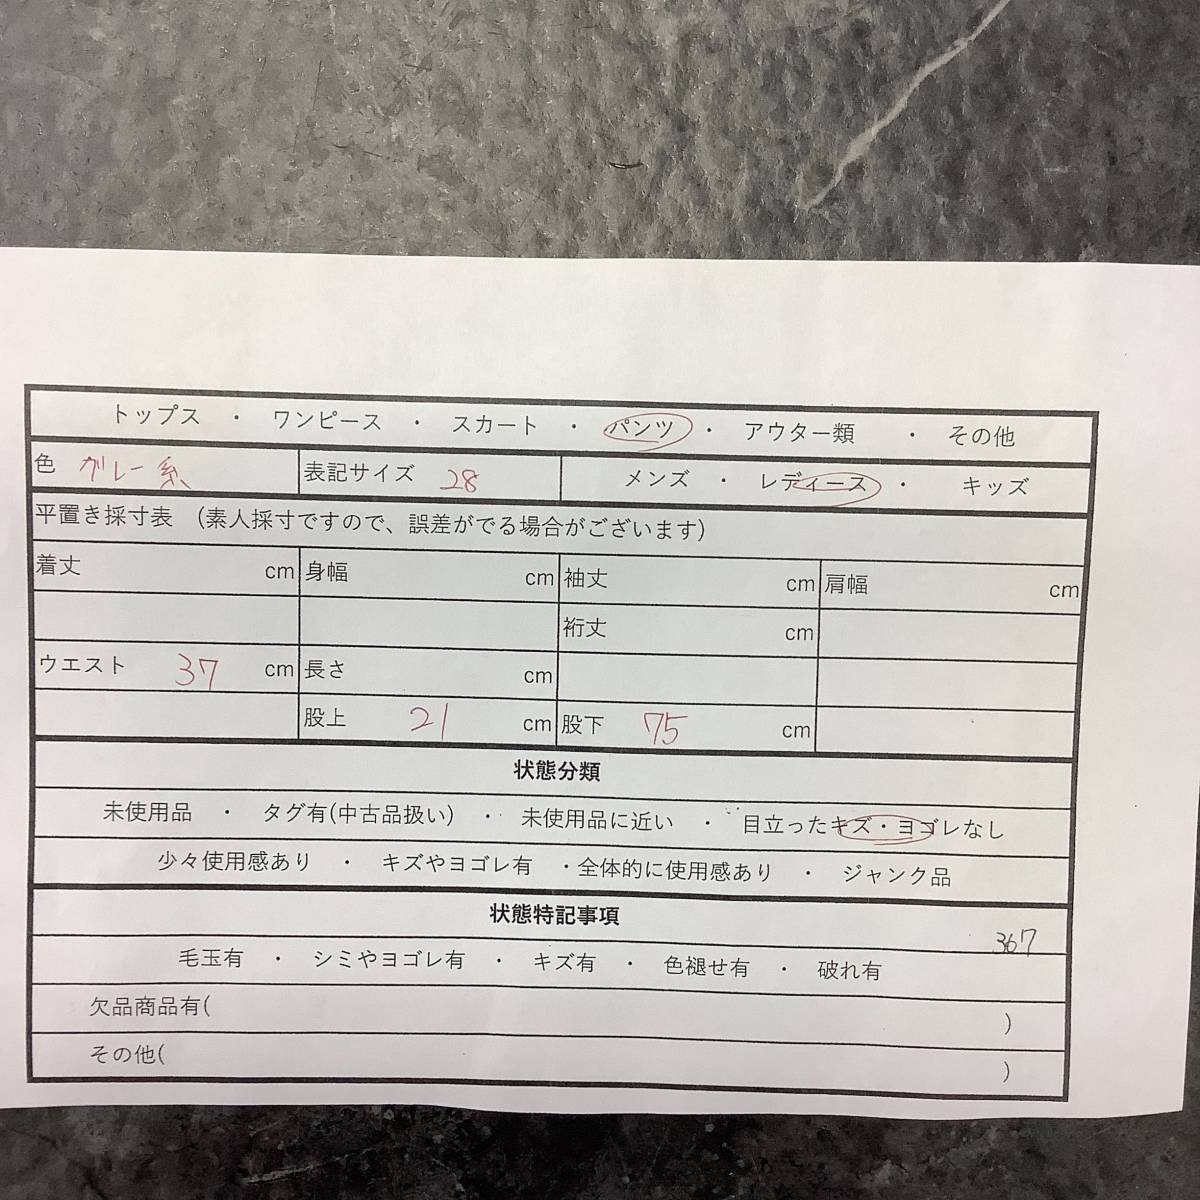 トップス ・ ワンピース ・ スカート ・ パンツ ・ アウター類 ・ その他
色 グレー系 表記サイズ 28 メンズ ・ レディース ・ キッズ
平置き採寸表 (素人採寸ですので、誤差がでる場合がございます)
着丈 cm 身幅 cm 袖丈 cm 肩幅 cm
裄丈 cm
ウエスト 37 cm 長さ cm
股上 21 cm 股下 75 cm
状態分類
未使用品 ・ タグ有(中古品扱い) ・ 未使用品に近い ・ 目立ったキズ・ヨゴレなし
少々使用感あり ・ キズやヨゴレ有 ・全体的に使用感あり ・ ジャンク品
状態特記事項
367
毛玉有 ・ シミやヨゴレ有 ・ キズ有 ・ 色褪せ有 ・ 破れ有
欠品商品有( )
その他( )